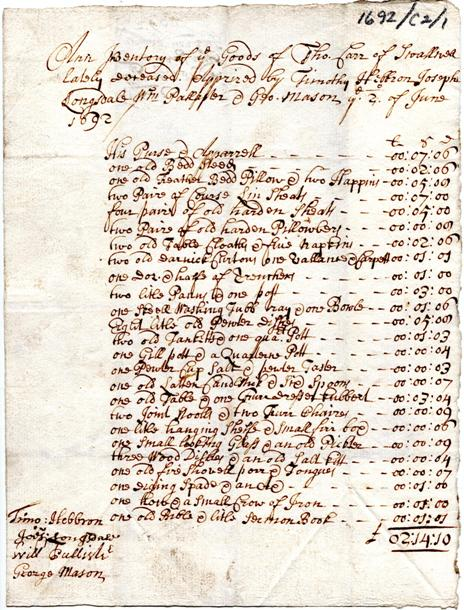 1692/C2/1
Ann Inventory of ye Goods of Tho. Carr of Swallwell
lately deceased Apprized by Timothy Hebron Joseph
Longsdale Wm Palliser & Geo. Mason ye 2. of June
1692
£ S D
His Purse & Apparrell - - - 00:07:06
one old Bedd Steed - - - 00:02:06
one old Feather Bedd Pillow & two Happins - 00:05:09
two Paire of Course Lin Sheats - - 00:07:00
four paire of old harden Sheats - - - 00:05:00
two Paire of old harden Pillowbers - - 00:00:09
two old Table Cloaths & five Napkins - - - 00:02:06
two old darnick Curtons one Vallance & Carpett 00:01:01
one doz: & halfe of Trenchers - - - 00:01:00
two litle Panns & one pott - - - 00:03:00
one Small Washing Tubb tray & one Bowle - 00:01:06
Eight litle old Pewter dishes - - 00:05:08
two old Tankitts & one qua. Pott - - 00:01:03
one Gill pott & a Quarterne Pott - - 00:00:04
one Pewter Cup Salt & pewter Taster - 00:00:03
one old Latten Candlestick & Spoons - 00:00:07
one old Table & one Furr dresser Cubbert - 00:03:04
two Joint Stools & two Furr Chaires - 00:00:09
one litle hanging Shelfe & Small firr box - - 00:00:06
one Small looking Glass & an old Pickter - - 00:00:09
three Wood Dishes & an old Salt kitt - - 00:00:04
one old fire Shovell porr & Tongues - - 00:00:07
one diging Spade & an - - 00:01:06
one & a Small Crow of Iron - - 00:01:00
one old Bible & litle Sermon Book - - - 00:01:01
£ 02:14:10
Timo: Hebbron
Jos: Longsdale
Will Pallisr
George Mason